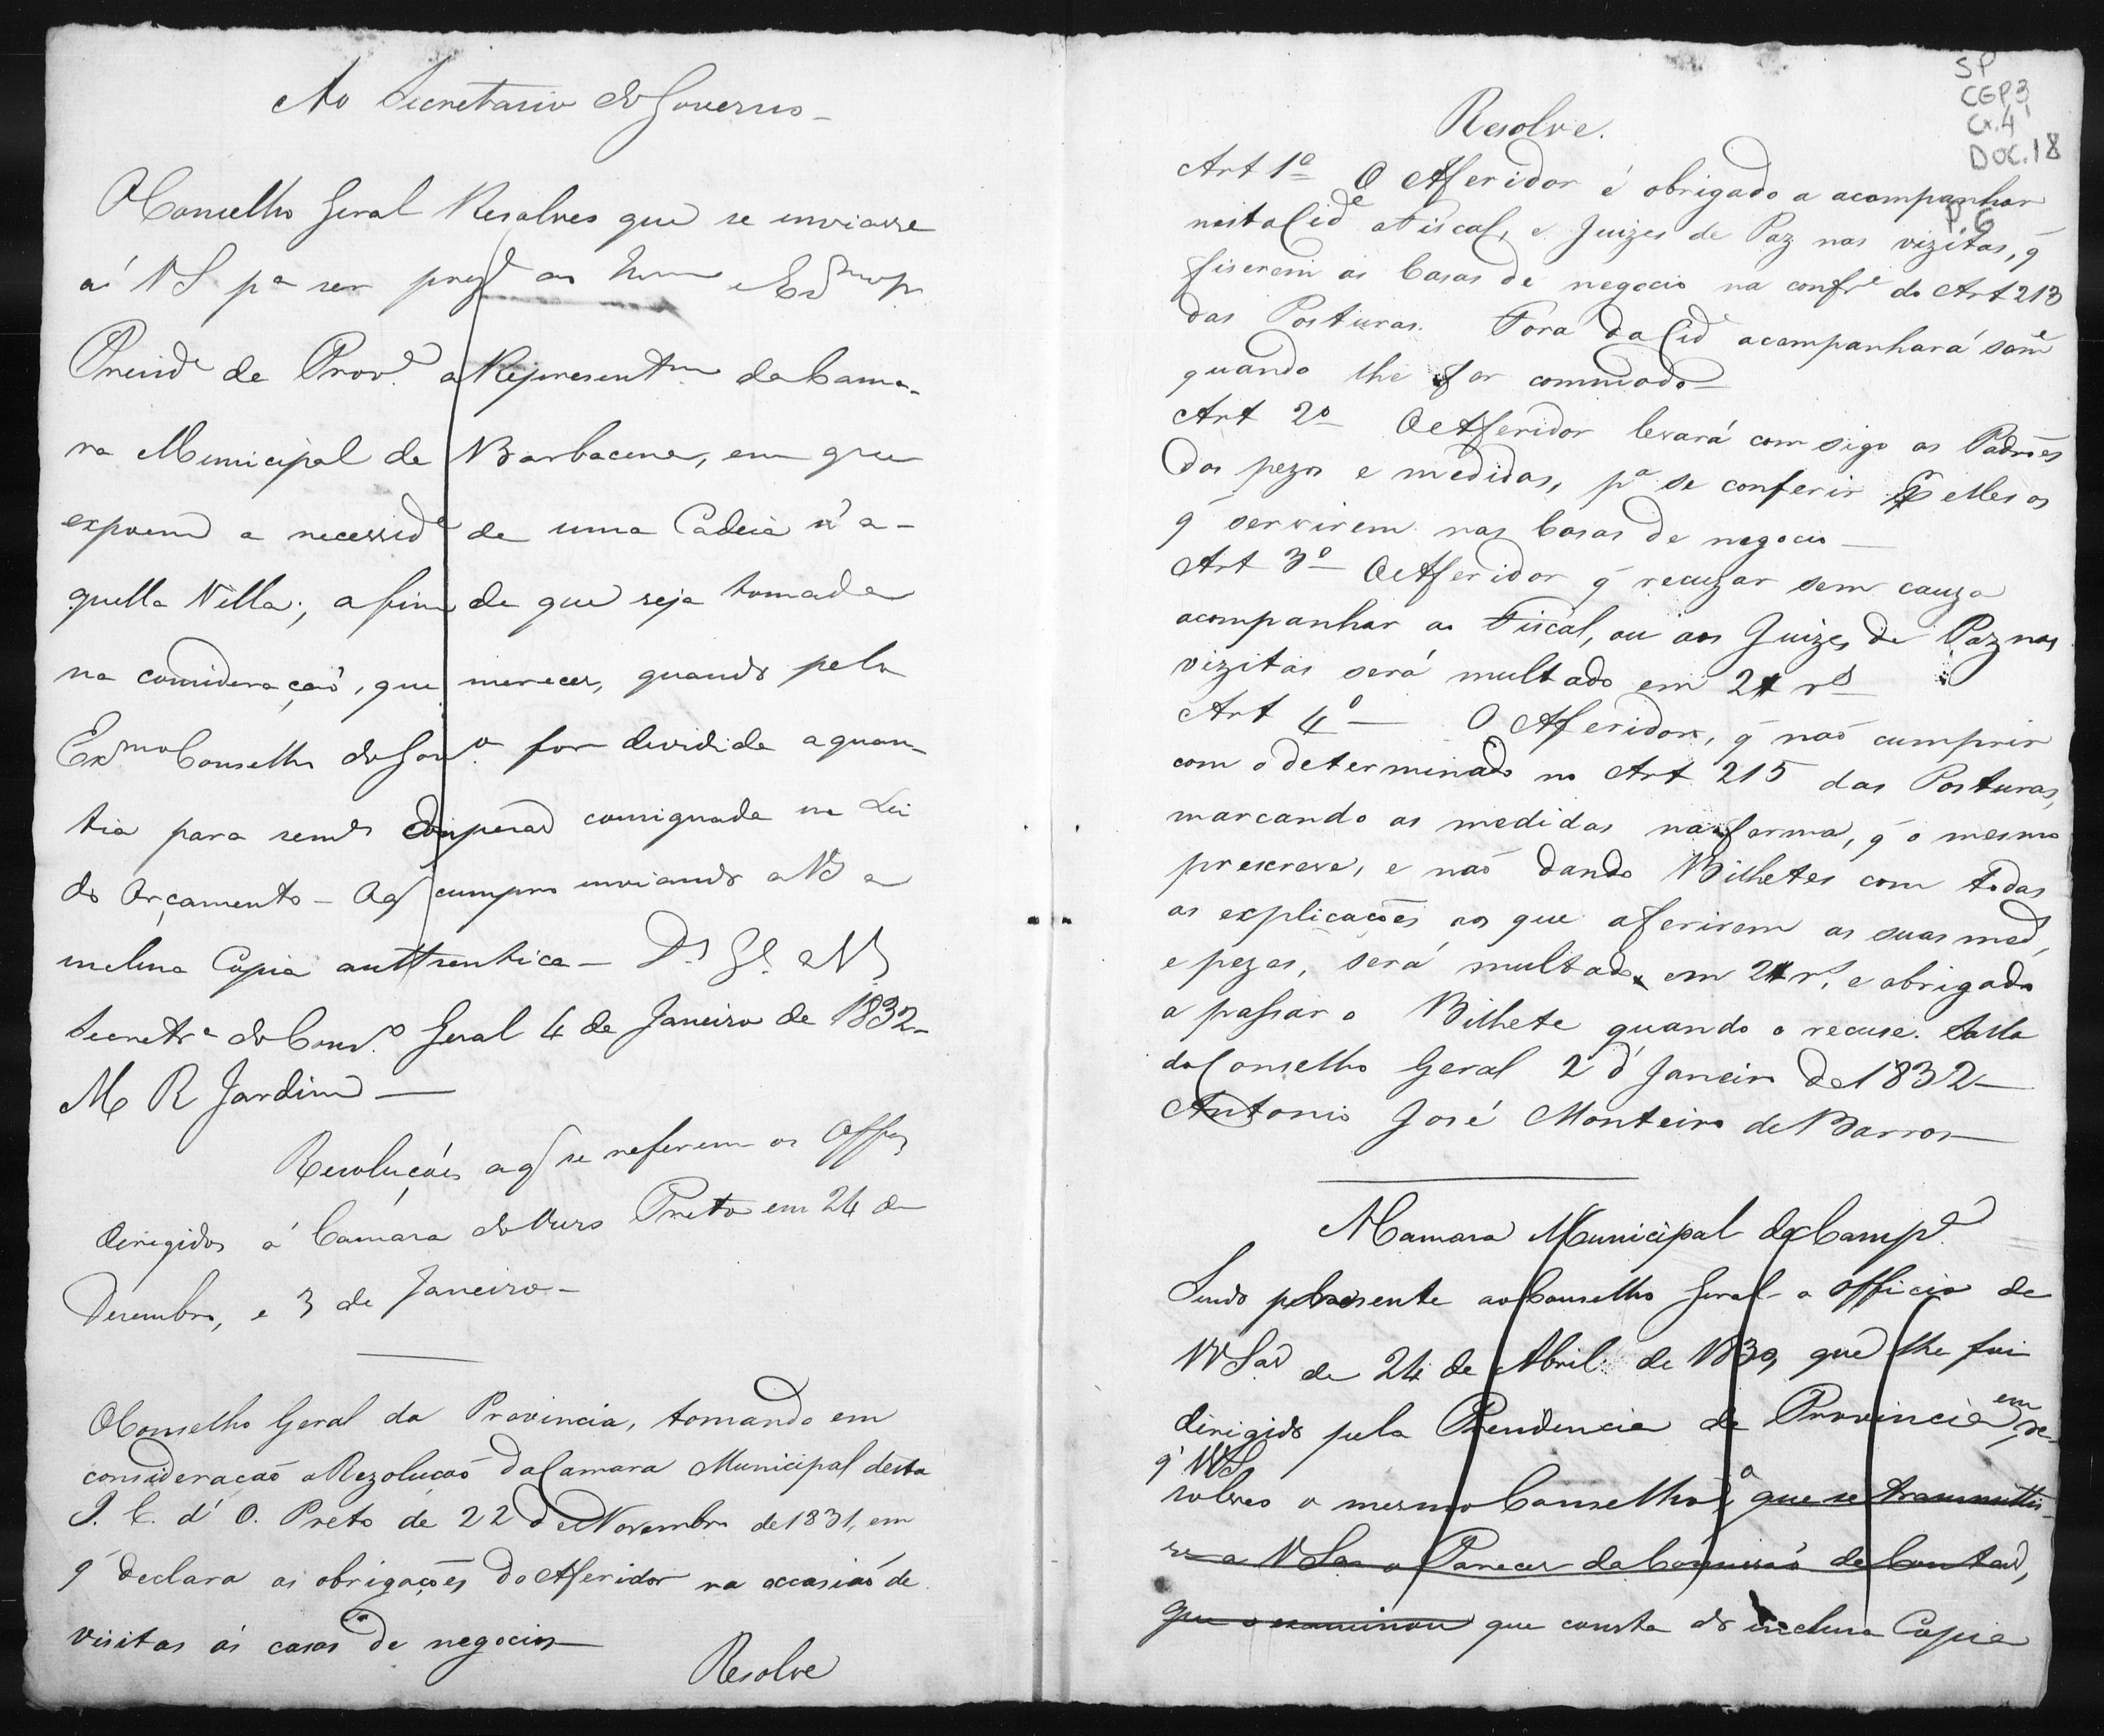 Ao Secretario do Governo_
O Conselho Geral Resolveo que se enviasse
a' VS pª ser presᵉ ao Exᵐᵒ
Presidᵉ da Provª a Representᵃᵐ da Cama-
ra Municipal de Barbacena, em que
expoem a necessidᵉ de uma Cadeia n'a-
quella Villa; a fim de que seja tomada
na consideração, que merecer, quando pelo
Exᵐᵒ Conselho do Govº for dividida a quan-
tia para semᵉˢ consignada na Lei
do Orçamento - Oq cumpro enviando a VS a
incluza Copia authentica - Dˢ Gᵉ a VS
Secretrª do Consº Geral 4 de Janeiro de 1832-
M R Jardim —
Resoluçóes aq se referem os Offᵒˢ
dirigidos á Camara do Ouro Preto em 24 de
Dezembro, e 3 de Janeiro-
O Conselho Geral da Provincia, tomando em
consideracaõ a Rezolucaõ da Camara Municipal desta
I. C. d' O. Preto de 22 de Novembro de 1831, em
q̃ declara as obrigações do Aferidor na occasiaõ de
visitas ás casas de negocios—
Resolve
SP
CGP3
Cx.4
DOC.18
P.6
Resolve.
Art 1º O Aferidor é obrigado a acompanhar
nesta Cidᵉ o Fiscal, e Juizes de Paz nas vizitas, q̃
fiserem ás Casas de negocio na confrᵉ do Art 213
das Posturas. Fora da Cidᵉ acompanhará somᵉ
quando lhe for commodo—
Art 2º O Aferidor levará com sigo os Padrões
dos pezos e medidas, pª se conferir p elles os
q̃ servirem nas Casas de negocio—
Art 3º O Aferidor q̃ recuzar sem cauza
acompanhar ao Fiscal, ou aos Juizes de Paz nas
vizitas será multado em 2$ rˢ
Art 4º — O Aferidor, q̃ naõ cumprir
com o determinado no Art 215 das Posturas,
marcando as medidas na forma, q̃ o mesmo
prescreve, e naõ dando Bilhetes com todas
as explicações aos que aferirem as suas medˢ
e pezos, será multado em 2$ rˢ, e obrigado
a passar o Bilhete quando o recuse. Salla
do Conselho Geral 2 d' Janeiro de 1832—
Antonio José Monteiro de Barros—
Á Camara Municipal da Campª
Sendo presente ao Conselho Geral o officio de
VVSas de 24 de Abril de 1830, que lhe foi
dirigido pela Prezidencia da Provincia, em re-
q̃ VVSˢ
solveo o mesmo Conselho, o que se transmittis-
se a VSas o Parecer da Commissaõ de Contas,
que o examinou que consta da incluza Copia